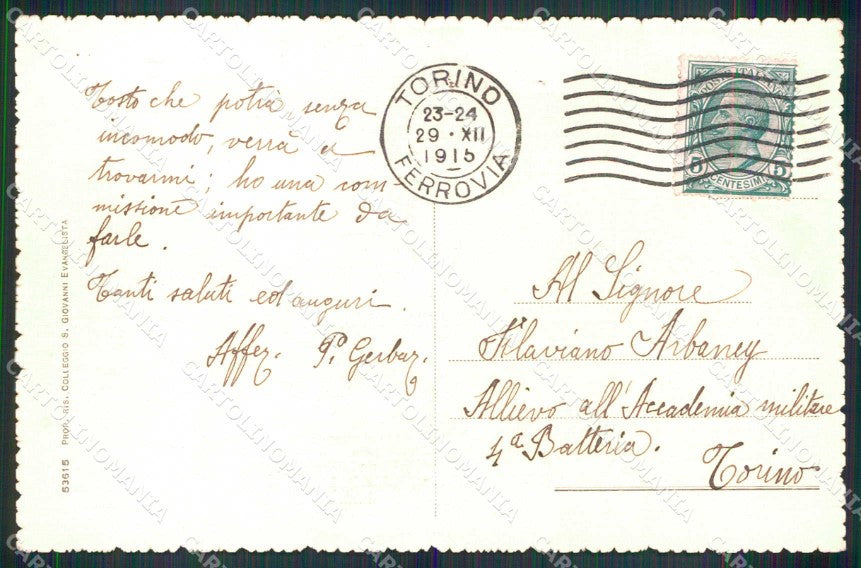 Tosto che potrà senza
incomodo, verrà a
trovarmi; ho una com-
missione importante da
farle.
Tanti saluti ed auguri.
Affez. P. Gerbaz.
53615 PROP. RIS. COLLEGGIO S. GIOVANNI EVANGELISTA
TORINO
23-24
29 · XII
1915
FERROVIA
POSTE ITALIANE
5 CENTESIMI 5
Al Signore
Flaviano Arbaney
Allievo all'Accademia militare
4ª Batteria.
Torino
CARTOLINOMANIA